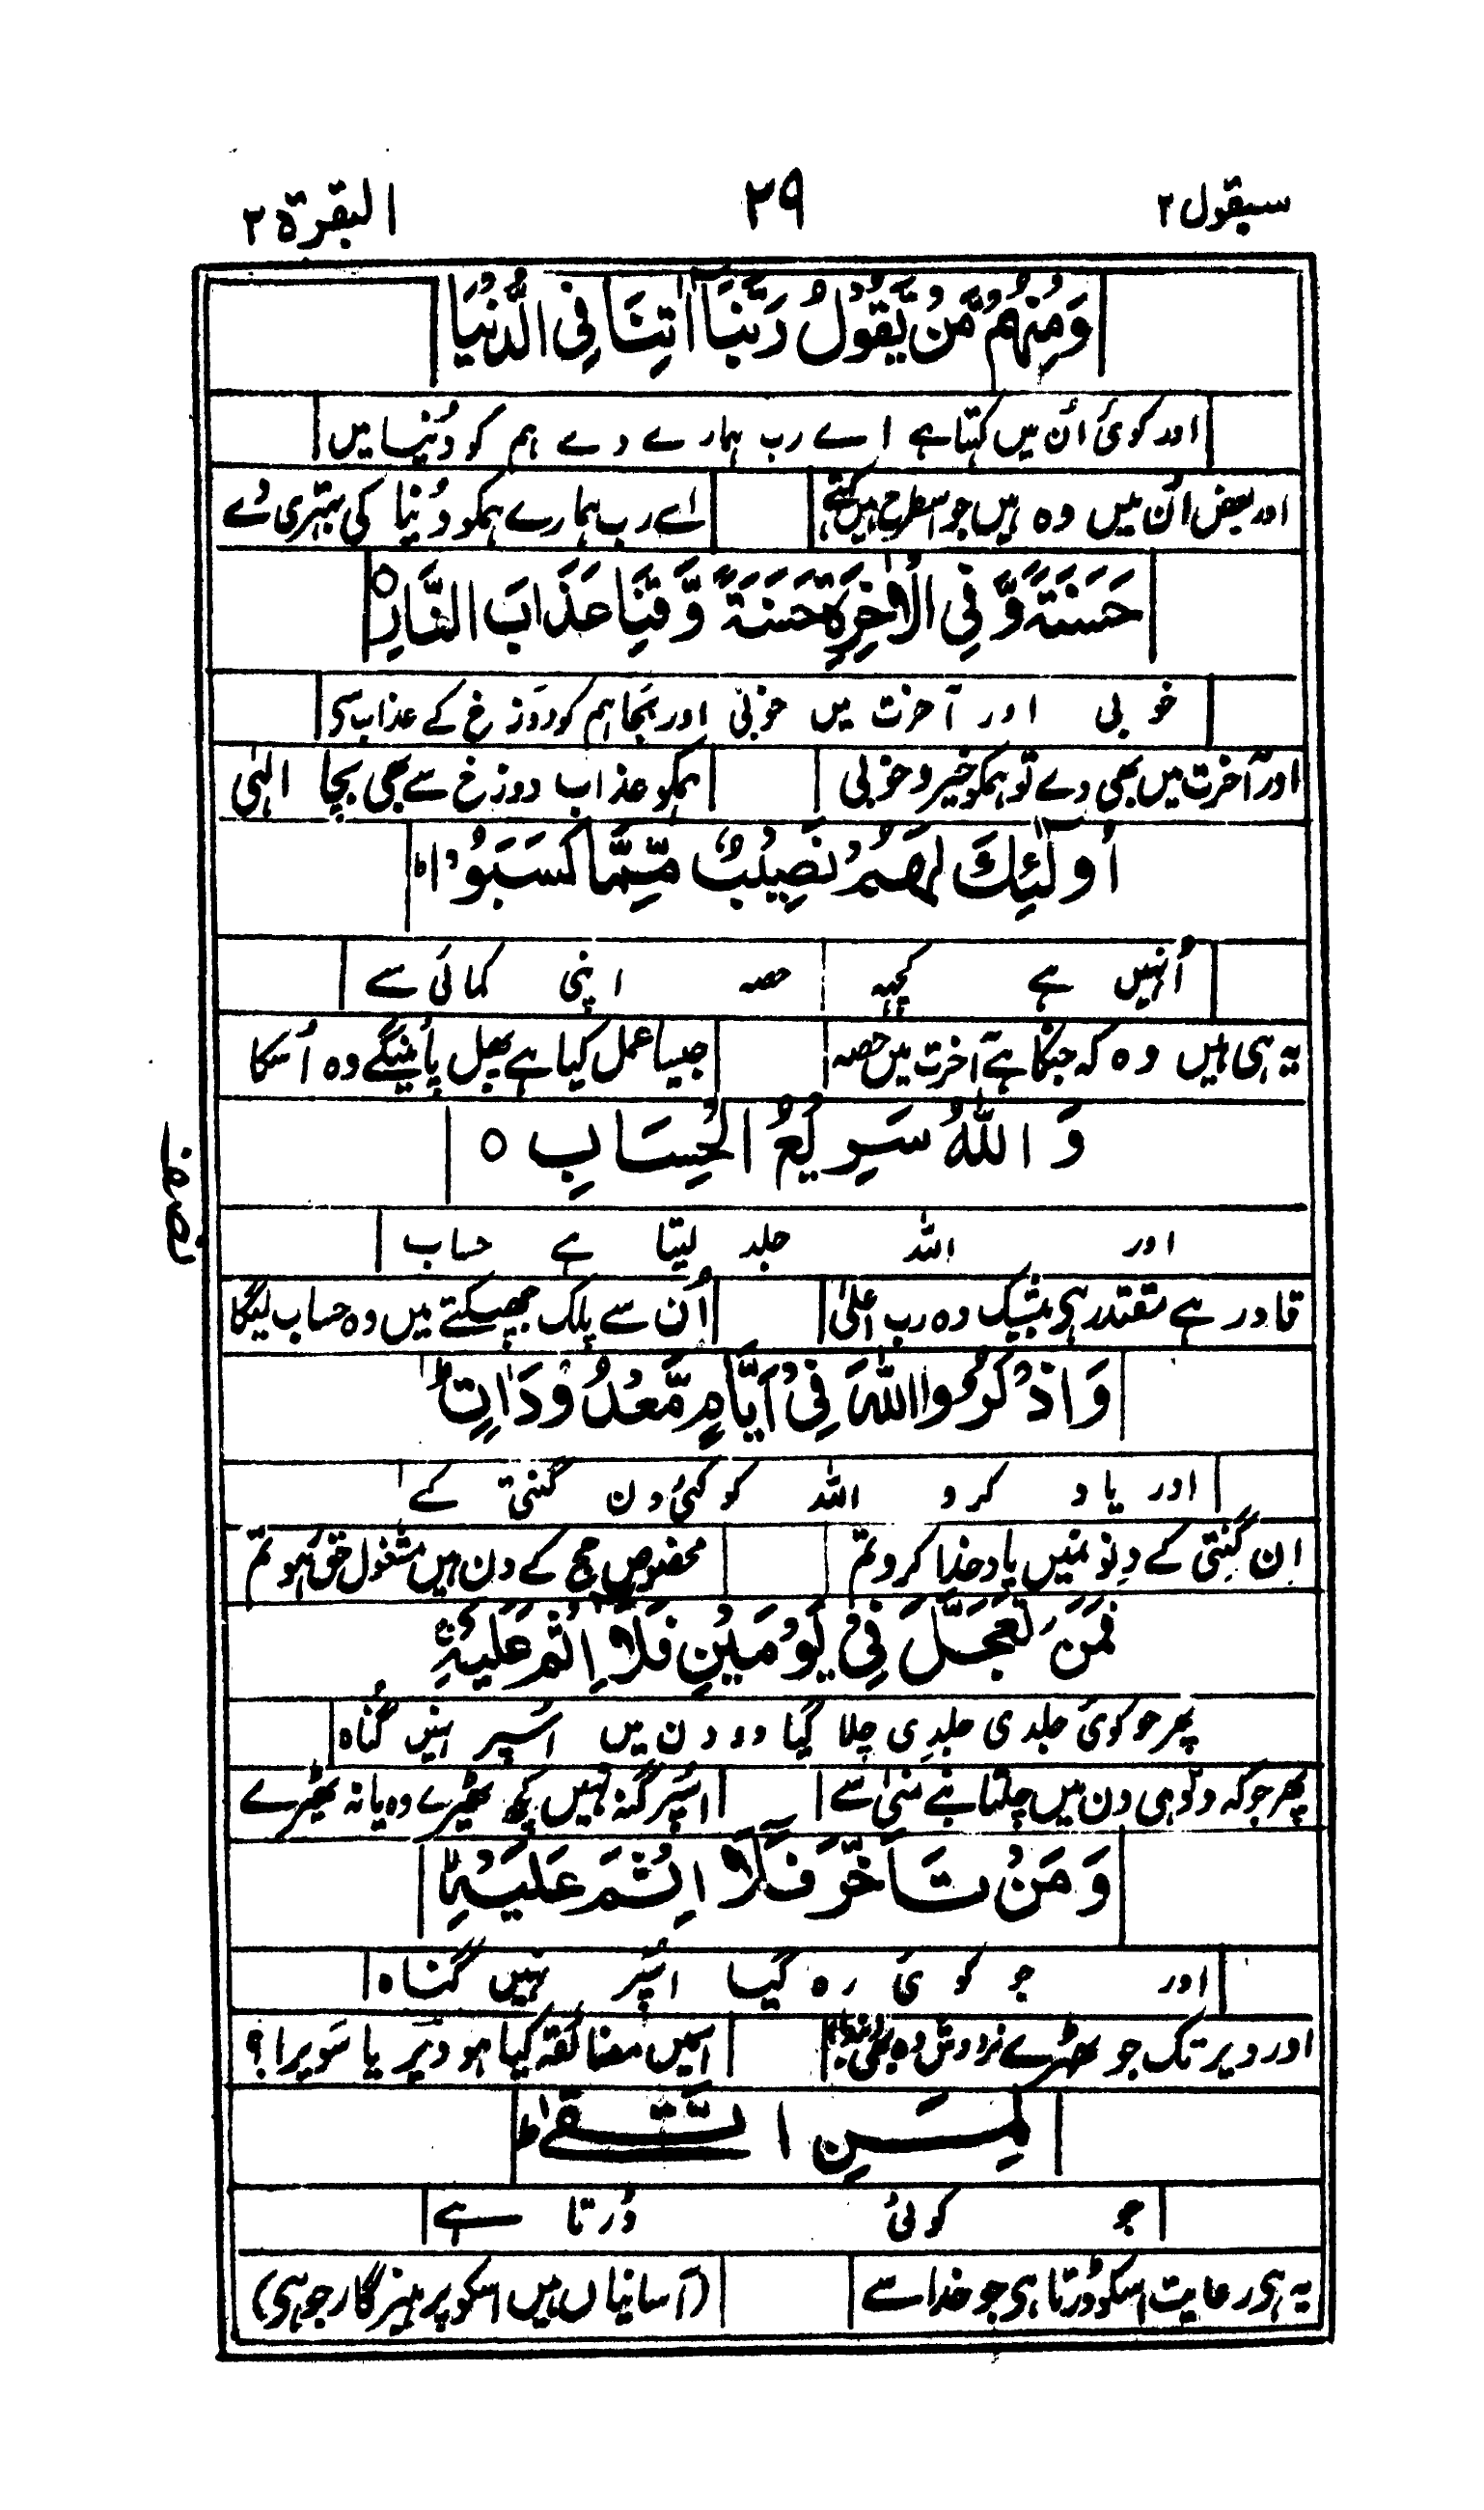 سیقول ۲ ۲۹ البقرة ۲
وَمِنْهُمْ مَّنْ يَّقُوْلُ رَبَّنَآ اٰتِنَا فِي الدُّنْيَا
اور کوئی اُن میں کہتا ہے اے رب ہمارے دے ہم کو دُنیا میں
اور بعض اُن میں وہ ہیں جو اسطرح ہیں کہتے اے رب ہمارے ہمکو دُنیا کی بہتری دے
حَسَنَةً وَّفِي الْاٰخِرَةِ حَسَنَةً وَّقِنَا عَذَابَ النَّارِ ○
خوبی اور آخرت میں خوبی اور بچا ہم کو دوزخ کے عذاب سی
اور آخرت میں بھی دے تو ہمکو خیر و خوبی ہمکو عذاب دوزخ سے بھی بچا الہٰی
اُولٰٓئِكَ لَهُمْ نَصِيْبٌ مِّمَّا كَسَبُوْا ط
اُنہیں ہے کچہہ حصہ اپنی کمائی سے
یہ ہی ہیں وہ کہ جنکا ہے آخرت میں حصہ جیسا عمل کیا ہے پھل پائینگے وہ اُسکا
وَاللّٰهُ سَرِيْعُ الْحِسَابِ ○
اور اللہ جلد لیتا ہے حساب
قادر ہے مقتدر ہی بیشک وہ رب اعلیٰ اُن سے پلک جھپکتے میں وہ حساب لیگا
وَاذْكُرُوا اللّٰهَ فِيْٓ اَيَّامٍ مَّعْدُوْدَاتٍ ط
اور یاد کرو اللہ کو کئی دن گنتی کے
اِن گنتی کے دِنونمیں یاد خدا کرو تم مخصوص حج کے دن ہیں مشغول حق ہو تم
فَمَنْ تَعَجَّلَ فِيْ يَوْمَيْنِ فَلَآ اِثْمَ عَلَيْهِ ج
پھر جو کوئی جلدی جلدی چلا گیا دو دن میں اُسپر نہیں گناہ
پھر جو کہ دو ہی دن میں چلتا بنے منیٰ سے اسپر گنہ نہیں کچھ ٹھیرے وہ یا نہ ٹھیرے
وَمَنْ تَاَخَّرَ فَلَآ اِثْمَ عَلَيْهِ ط
اور جو کوئی رہ گیا اُسپر نہیں گناہ
اور دیر تک جو ٹھیرے اسمیں مضائقہ کیا ہو دیر یا سَویرا؟
لِمَنِ اتَّقٰى ط
جو کوئی ڈرتا ہے
یہ ہی رعایت اسکو ڈرتا ہی جو خدا سے (آسانیاں ہیں اسکو پرہیزگار جو ہی)